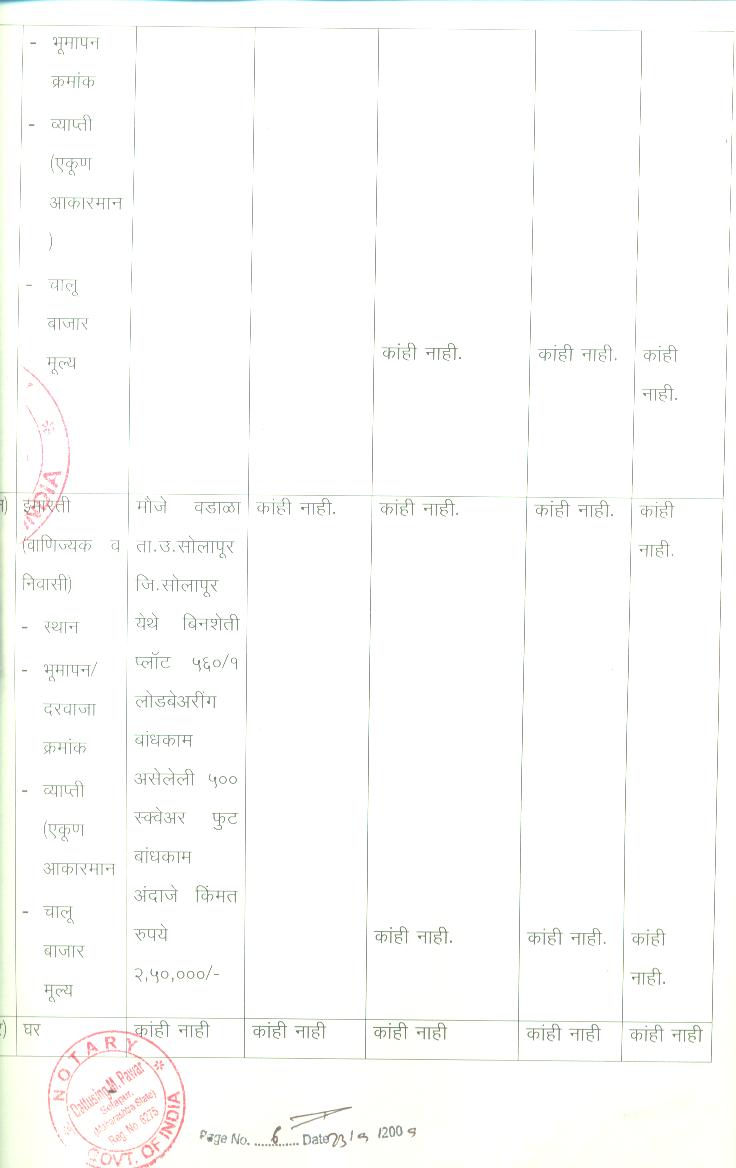 - भूमापन
क्रमांक
- व्याप्ती
(एकूण
आकारमान
)
- चालू
बाजार
मूल्य
कांही नाही. कांही नाही. कांही
नाही.
इमारती मौजे वडाळा कांही नाही. कांही नाही. कांही नाही. कांही
(वाणिज्यक व ता.उ.सोलापूर नाही.
निवासी) जि.सोलापूर
- स्थान येथे बिनशेती
- भूमापन/ प्लॉट ५६०/१
दरवाजा लोडबेअरींग
क्रमांक बांधकाम
- व्याप्ती असेलेली ५००
(एकूण स्क्वेअर फुट
आकारमान बांधकाम
- चालू अंदाजे किंमत
बाजार रुपये कांही नाही. कांही नाही. कांही
मूल्य २,५०,०००/- नाही.
घर कांही नाही कांही नाही कांही नाही कांही नाही कांही नाही
NOTARY
Dattusing M. Pawar
Solapur.
(Maharashtra State)
Reg. No. 6275
GOVT. OF INDIA
Page No. 6 Date 1200